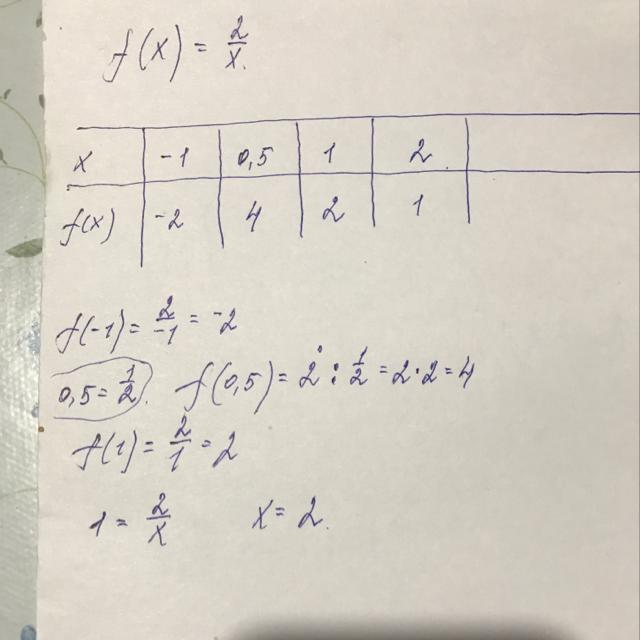 f(x) = 2/x.
x -1 0,5 1 2
f(x) -2 4 2 1
f(-1) = 2/-1 = -2
0,5 = 1/2. f(0,5) = 2 : 1/2 = 2·2 = 4
f(1) = 2/1 = 2
1 = 2/x x = 2.